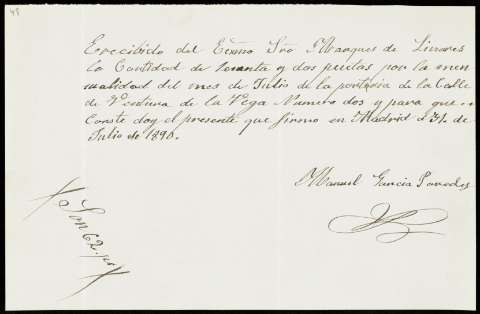 45
E recibido del Exmo Sño Marques de Linares
la Cantidad de senenta y dos pesetas por la men
sualidad del mes de Julio de la porteria de la Calle
de Ventura de la Vega Numero dos y para que
Conste doy el presente que firmo en Madrid a 31 de
Julio de 1890.
Manuel Garcia Paredes
Son 62 pts